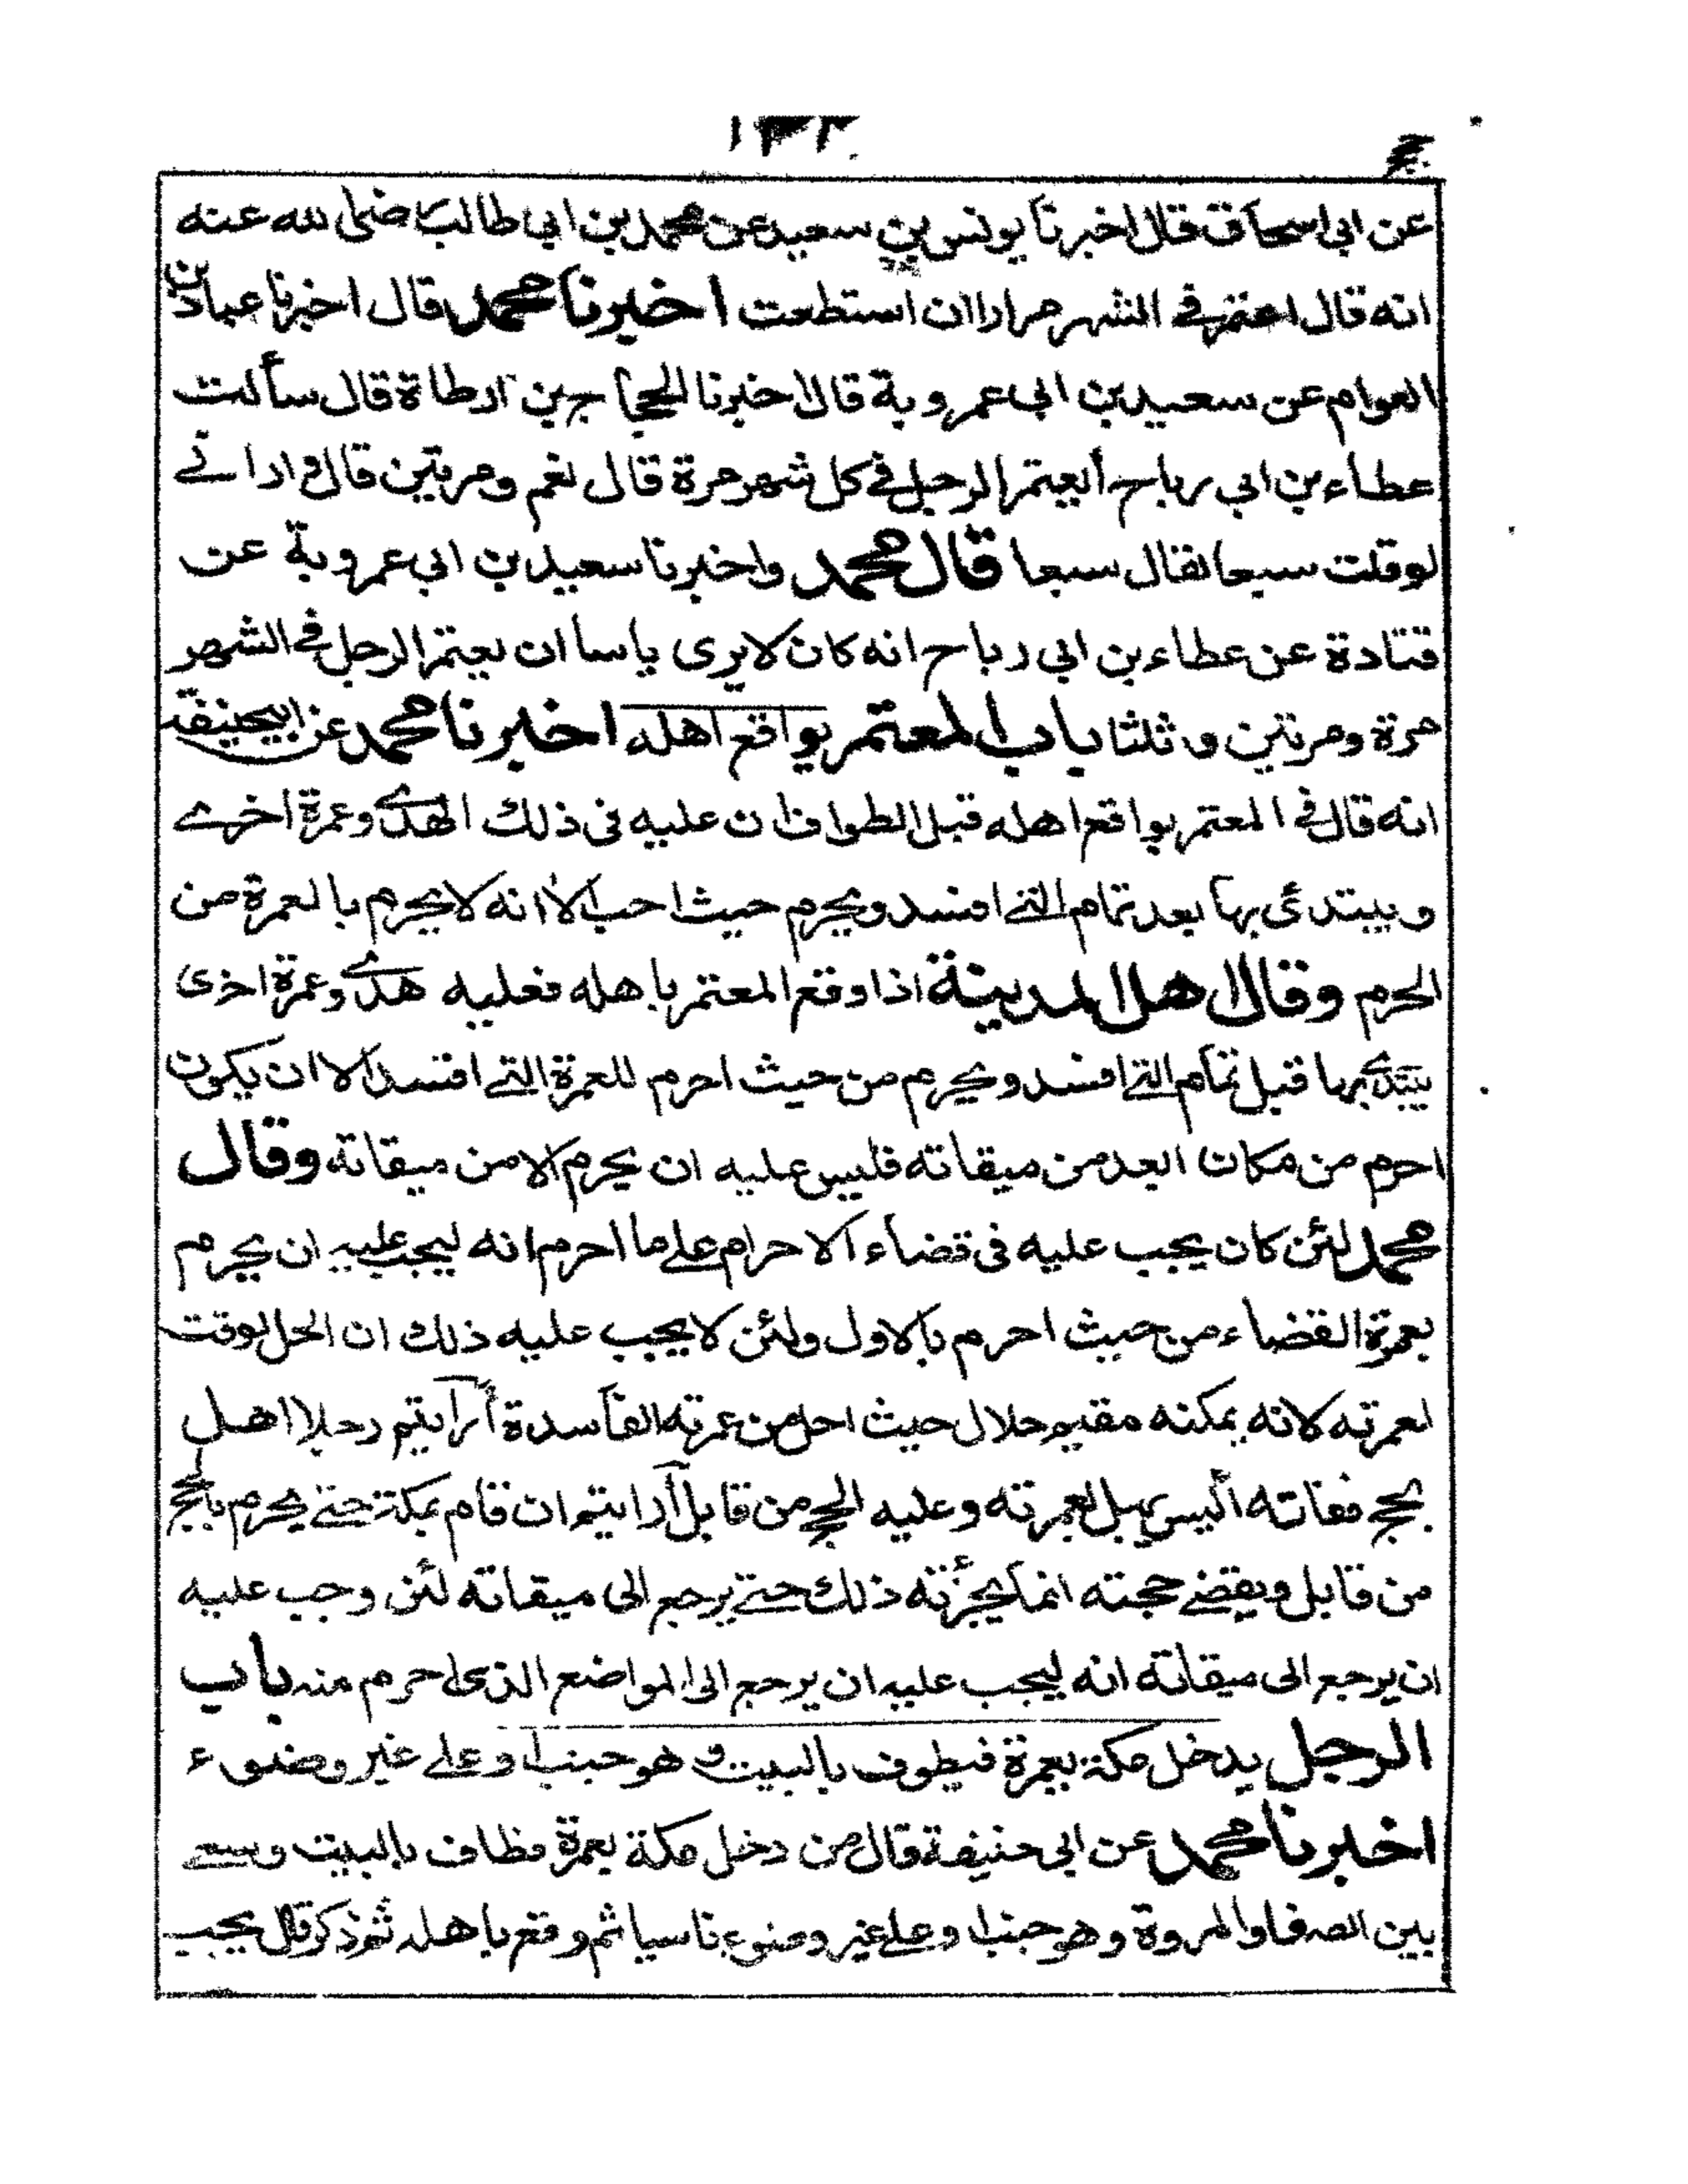 عن ابي اسحاق قال اخبرنا يونس بن سعيد عن محمد بن ابي طالب رضي الله عنه
انه قال اعتمر في الشهر مرارا ان استطعت اخبرنا محمد قال اخبرنا عباد بن
العوام عن سعيد بن ابي عروبة قال اخبرنا الحجاج بن ارطاة قال سألت
عطاء بن ابي رباح أيعتمر الرجل في كل شهر مرة قال نعم ومرتين قال واراني
لو قلت سبعا لقال سبعا قال محمد واخبرنا سعيد بن ابي عروبة عن
قتادة عن عطاء بن ابي رباح انه كان لا يرى باسا ان يعتمر الرجل في الشهر
مرة ومرتين وثلثا باب المعتمر يواقع اهله اخبرنا محمد عن ابي حنيفة
انه قال في المعتمر يواقع اهله قبل الطواف ان عليه في ذلك الهدى وعمرة اخرى
ويبتدئ بها بعد تمام التي افسد ويحرم حيث احب الا انه لا يحرم بالعمرة من
الحرم وقال اهل المدينة اذا وقع المعتمر باهله فعليه هدى وعمرة اخرى
يبتدئ بها قبل تمام التي افسد ويحرم من حيث احرم للعمرة التي افسد الا ان يكون
احرم من مكان ابعد من ميقاته فليس عليه ان يحرم الا من ميقاته وقال
محمد لئن كان يجب عليه في قضاء الاحرام على ما احرم انه ليجب عليه ان يحرم
بعمرة القضاء من حيث احرم بالاول ولئن لا يجب عليه ذلك ان الحل لوقت
لعمرته لانه بمكنه مقيم حلال حيث احل من عمرته الفاسدة أرأيتم رجلا اهل
بحج ففاته اليس يهل لعمرته وعليه الحج من قابل أرايتم ان قام بمكة حتى يحرم بالحج
من قابل ويقضي حجته انما يجزئه ذلك حتى يرجع الى ميقاته لئن وجب عليه
ان يرجع الى ميقاته انه ليجب عليه ان يرجع الى المواضع الذى احرم منه باب
الرجل يدخل مكة بعمرة فيطوف بالبيت وهو جنب او على غير وضوء
اخبرنا محمد عن ابي حنيفة قال من دخل مكة بعمرة فطاف بالبيت وسعى
بين الصفا والمروة وهو جنب او على غير وضوء ناسيا ثم وقع باهله ثم ذكر قال يجب